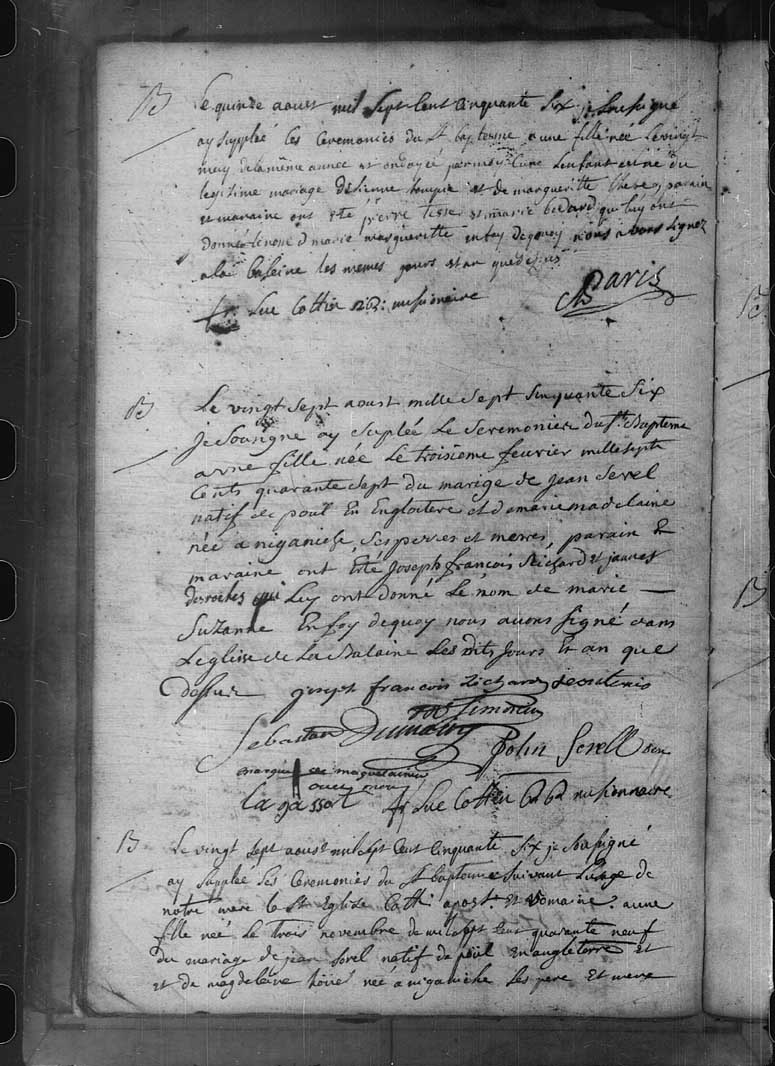 B
Le quinze aoust mil Sept Cent Cinquante Six je Soussigné
ay Suppleé les Ceremonies du St baptesme a une fille née le vingt
may de la même année et ondoyée par moy Curé Lenfant est né du
legitime mariage d'Etienne et de margueritte parain
et maraine ont été pierre et marie bedard qui luy ont
donné le nom d marie margueritte en foy de quoy nous avons Signez
a la baleine les memes jours et an que dessus
Paris
fr. Luc Cottin missionaire
B
Le vingt Sept aoust mille Sept Sinquante Six
Je Sousigne ay Suplée Le Seremonies du St. Bapteme
a vne fille née Le troisieme feurier mille septs
Cents quarante Sept du marige de jean Serel
natif de poul En Engloitere et de marie madelaine
née a niganiche, Ses perres et merres, parain &
maraine ont Esté Joseph françois Richard et jannes
desroches qui Luy ont donné Le nom de marie —
Suzanne En foy de quoy nous auons Signé dans
Leglise de La Balaine Les Dits Jours Et an que
Dessus joseph francois Richard
Simonin
Sebastian
John Serell
marque
Lagassot fr Luc Cottin missionnaire
B
Le vingt Sept aoust mil Sept Cent Cinquante Six je Soussigné
ay Suppleé Les Ceremonies du St baptesme Suivant Lusage de
notre mere la Ste Eglise Cath: apost. Et Romaine: a une
fille née Le trois novembre de mil Sept Cent quarante neuf
Du mariage de jean Sorel natif de poül En angleterre Et
Et de magdelaine née a niganiche Les pere Et mere